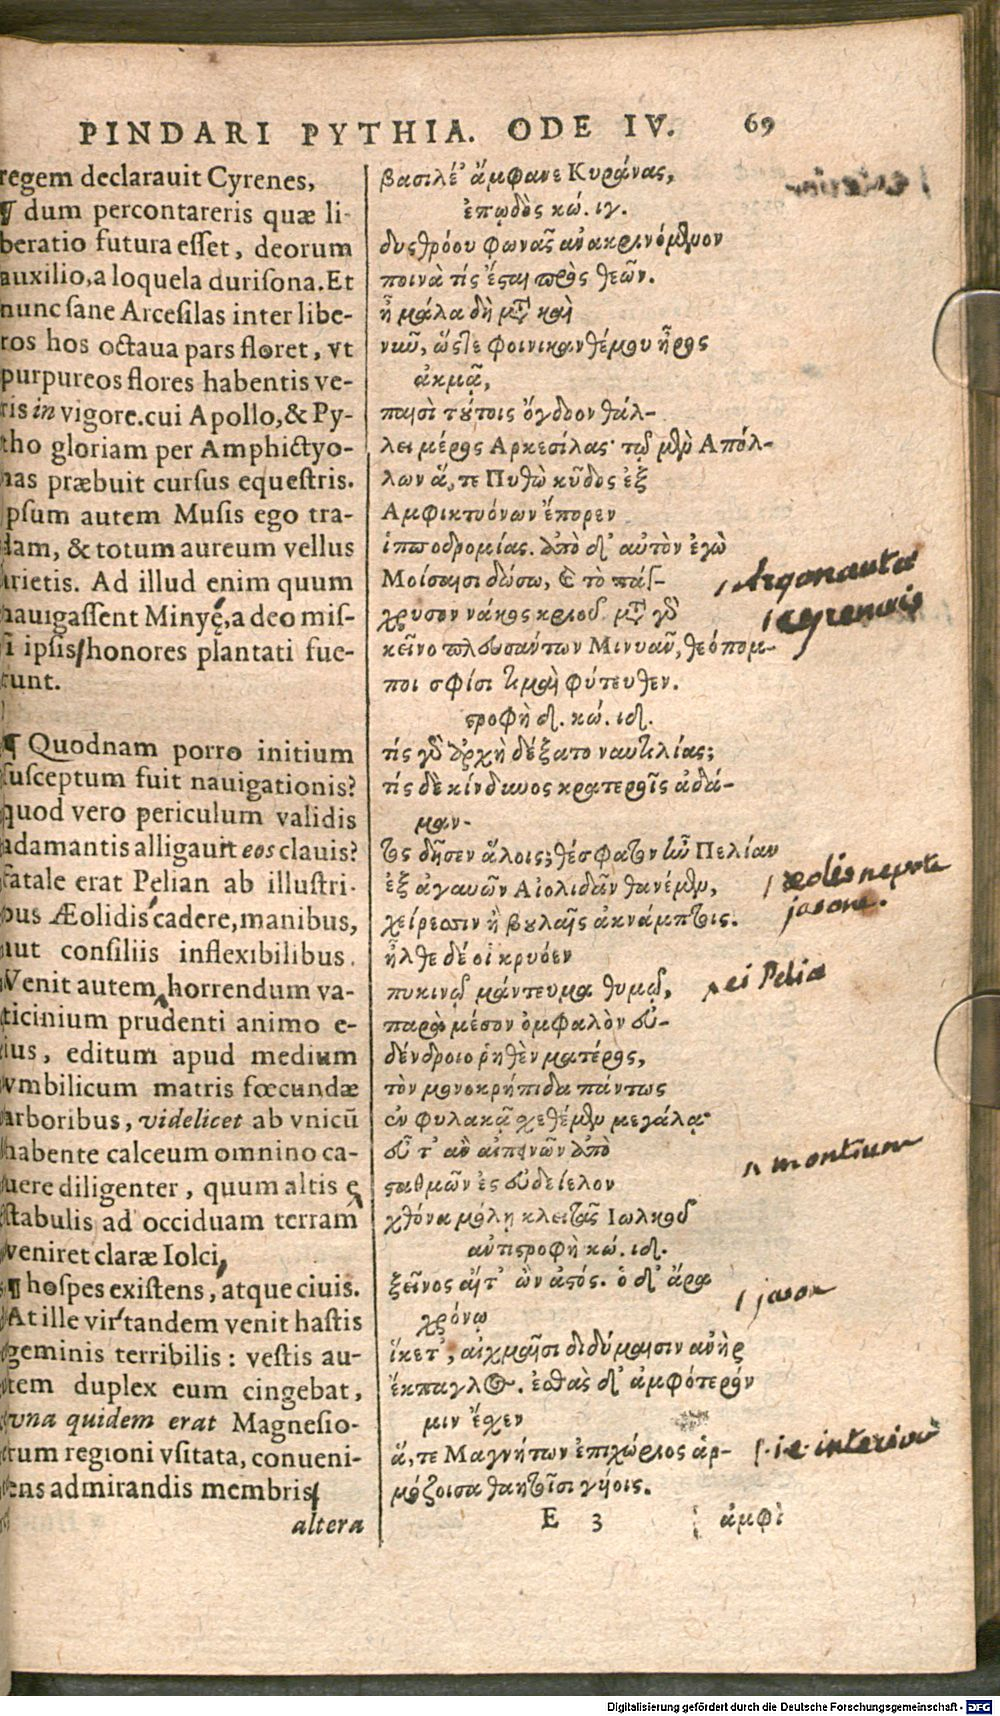 PINDARI PYTHIA. ODE IV. 69
regem declarauit Cyrenes,
¶ dum percontareris quæ li-
beratio futura esset, deorum
auxilio, a loquela durisona. Et
nunc sane Arcesilas inter libe-
ros hos octaua pars floret, vt
purpureos flores habentis ve-
ris in vigore. cui Apollo, & Py-
tho gloriam per Amphictyo-
nas præbuit cursus equestris.
Ipsum autem Musis ego tra-
dam, & totum aureum vellus
arietis. Ad illud enim quum
nauigassent Minyę, a deo mis-
si ipsis honores plantati fue-
runt.
¶ Quodnam porro initium
susceptum fuit nauigationis?
quod vero periculum validis
adamantis alligauit eos clauis?
fatale erat Pelian ab illustri-
bus Æolidis cadere, manibus,
aut consiliis inflexibilibus.
Venit autem horrendum va-
ticinium prudenti animo e-
ius, editum apud medium
vmbilicum matris fœcundæ
arboribus, videlicet ab vnicū
habente calceum omnino ca-
uere diligenter, quum altis e
stabulis ad occiduam terram
veniret claræ Iolci,
¶ hospes existens, atque ciuis.
At ille vir tandem venit hastis
geminis terribilis: vestis au-
tem duplex eum cingebat,
vna quidem erat Magnesio-
rum regioni vsitata, conueni-
ens admirandis membris,
altera
βασιλέ' ἄμφανε Κυράνας,
ἐπῳδὸς κώ. ιγ.
δυςθρόου φωνᾶς ἀνακρινόμενον
ποινὰ τίς ἔσται πρὸς θεῶν.
ἦ μάλα δὴ μετὰ καὶ
νῦν, ὥςτε φοινικανθέμου ἦρος
ἀκμᾷ,
παισὶ τούτοις ὄγδοον θάλ-
λει μέρος Αρκεσίλας· τῷ μὲν Απόλ-
λων ἅ, τε Πυθὼ κῦδος ἐξ
Αμφικτυόνων ἔπορεν
ἱπποδρομίας. ἀπὸ δ' αὐτὸν ἐγὼ
Μοίσαισι δώσω, καὶ τὸ πάγ-
χρυσον νάκος κριοῦ. μετὰ γὰρ
κεῖνο πλευσάντων Μινυᾶν, θεόπομ-
ποι σφίσι τιμαὶ φύτευθεν.
στροφὴ δ. κώ. ιδ.
τίς γὰρ ἀρχὴ δέξατο ναυτιλίας;
τίς δὲ κίνδυνος κρατεροῖς ἀδά-
μαν-
τος δῆσεν ἅλοις; θέσφατον ἦν Πελίαν
ἐξ ἀγαυῶν Αἰολιδᾶν θανέμεν,
χείρεσσιν ἢ βουλαῖς ἀκνάμπτοις.
ἦλθε δέ οἱ κρυόεν
πυκινῷ μάντευμα θυμῷ,
παρὰ μέσον ὀμφαλὸν εὐ-
δένδροιο ῥηθὲν ματέρος,
τὸν μονοκρήπιδα πάντως
ἐν φυλακᾷ σχεθέμεν μεγάλᾳ·
εὖ τ' ἂν αἰπεινῶν ἀπὸ
σταθμῶν ἐς εὐδείελον
χθόνα μόλῃ κλειτᾶς Ιωλκοῦ
ἀντιστροφὴ κώ. ιδ.
ξεῖνος αἴτ' ὢν ἀστός. ὁ δ' ἄρα
χρόνῳ
ἵκετ', αἰχμαῖσι διδύμαισιν ἀνὴρ
ἔκπαγλος. ἐσθὰς δ' ἀμφότερόν
μιν ἔχεν
ἅ, τε Μαγνήτων ἐπιχώριος ἁρ-
μόζοισα θαητοῖσι γυίοις.
E 3 ἀμφὶ
Argonautæ
i cyrenais
æolis nepote
jasone.
ei Pelia
montium
jason
.i.e. interiori
Digitalisierung gefördert durch die Deutsche Forschungsgemeinschaft - DFG